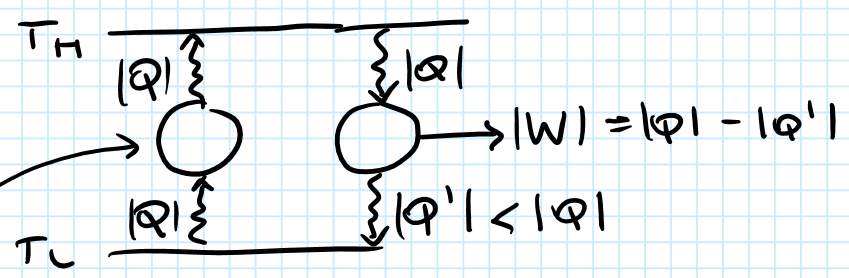 T_H
|Q| |Q|
|W| = |Q| - |Q'|
|Q| |Q'| < |Q|
T_L